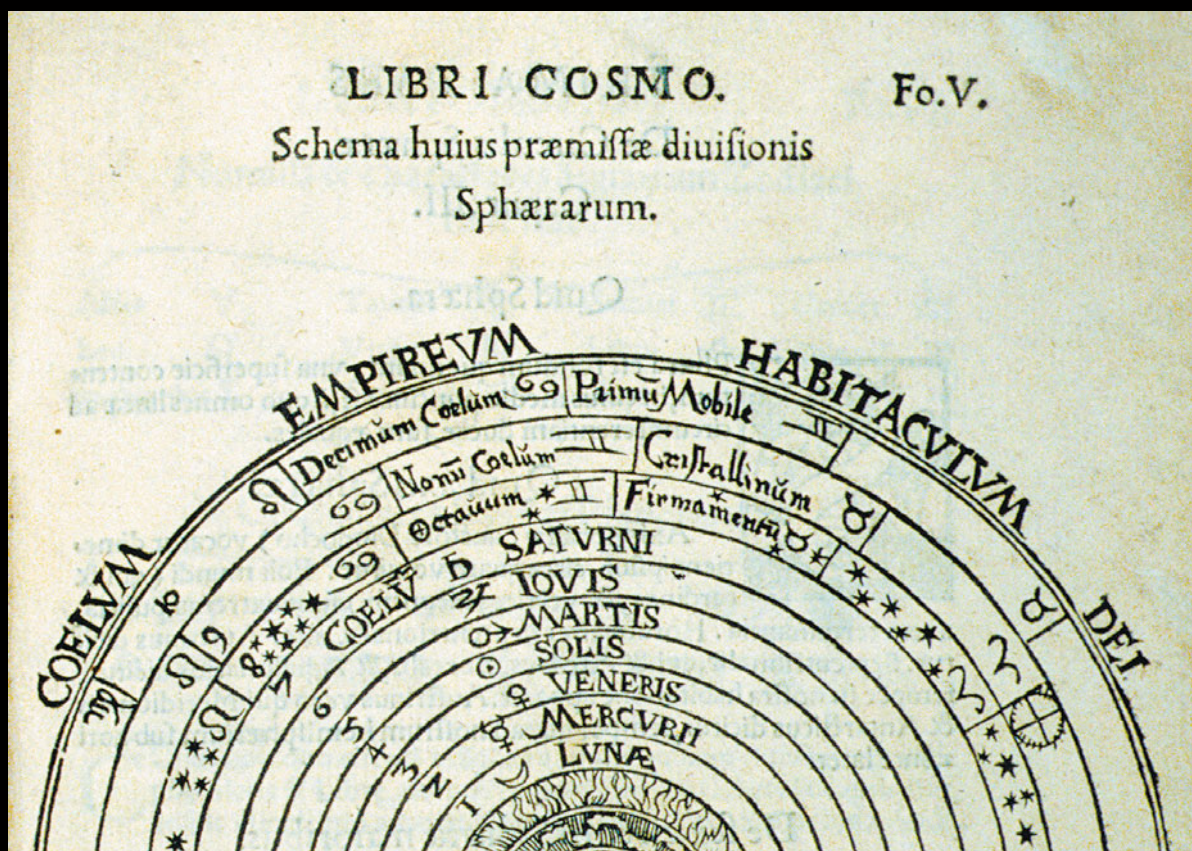 LIBRI COSMO. Fo.V.
Schema huius præmiſſæ diuiſionis
Sphærarum.
COELVM EMPIREVM HABITACVLVM DEI
10 Decimum Coelum Primū Mobile
9 Nonū Coelum Criſtallinum
8 Octauum Firmamentū
7 COELV ♄ SATVRNI
6 ♃ IOVIS
5 ♂ MARTIS
4 ☉ SOLIS
3 ♀ VENERIS
2 ☿ MERCVRII
1 ☽ LVNÆ